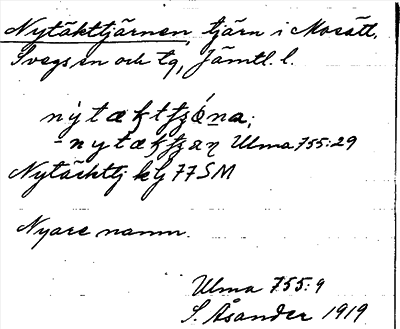 Nytäkttjärnen, tjärn i Mosätt,
Svegs sn och tg, Jämtl. l.
- nytæktjæn Ulma 755:29
Nytäckttj klj 77 SM
Nyare namn.
Ulma 755:9
S. Åsander 1919